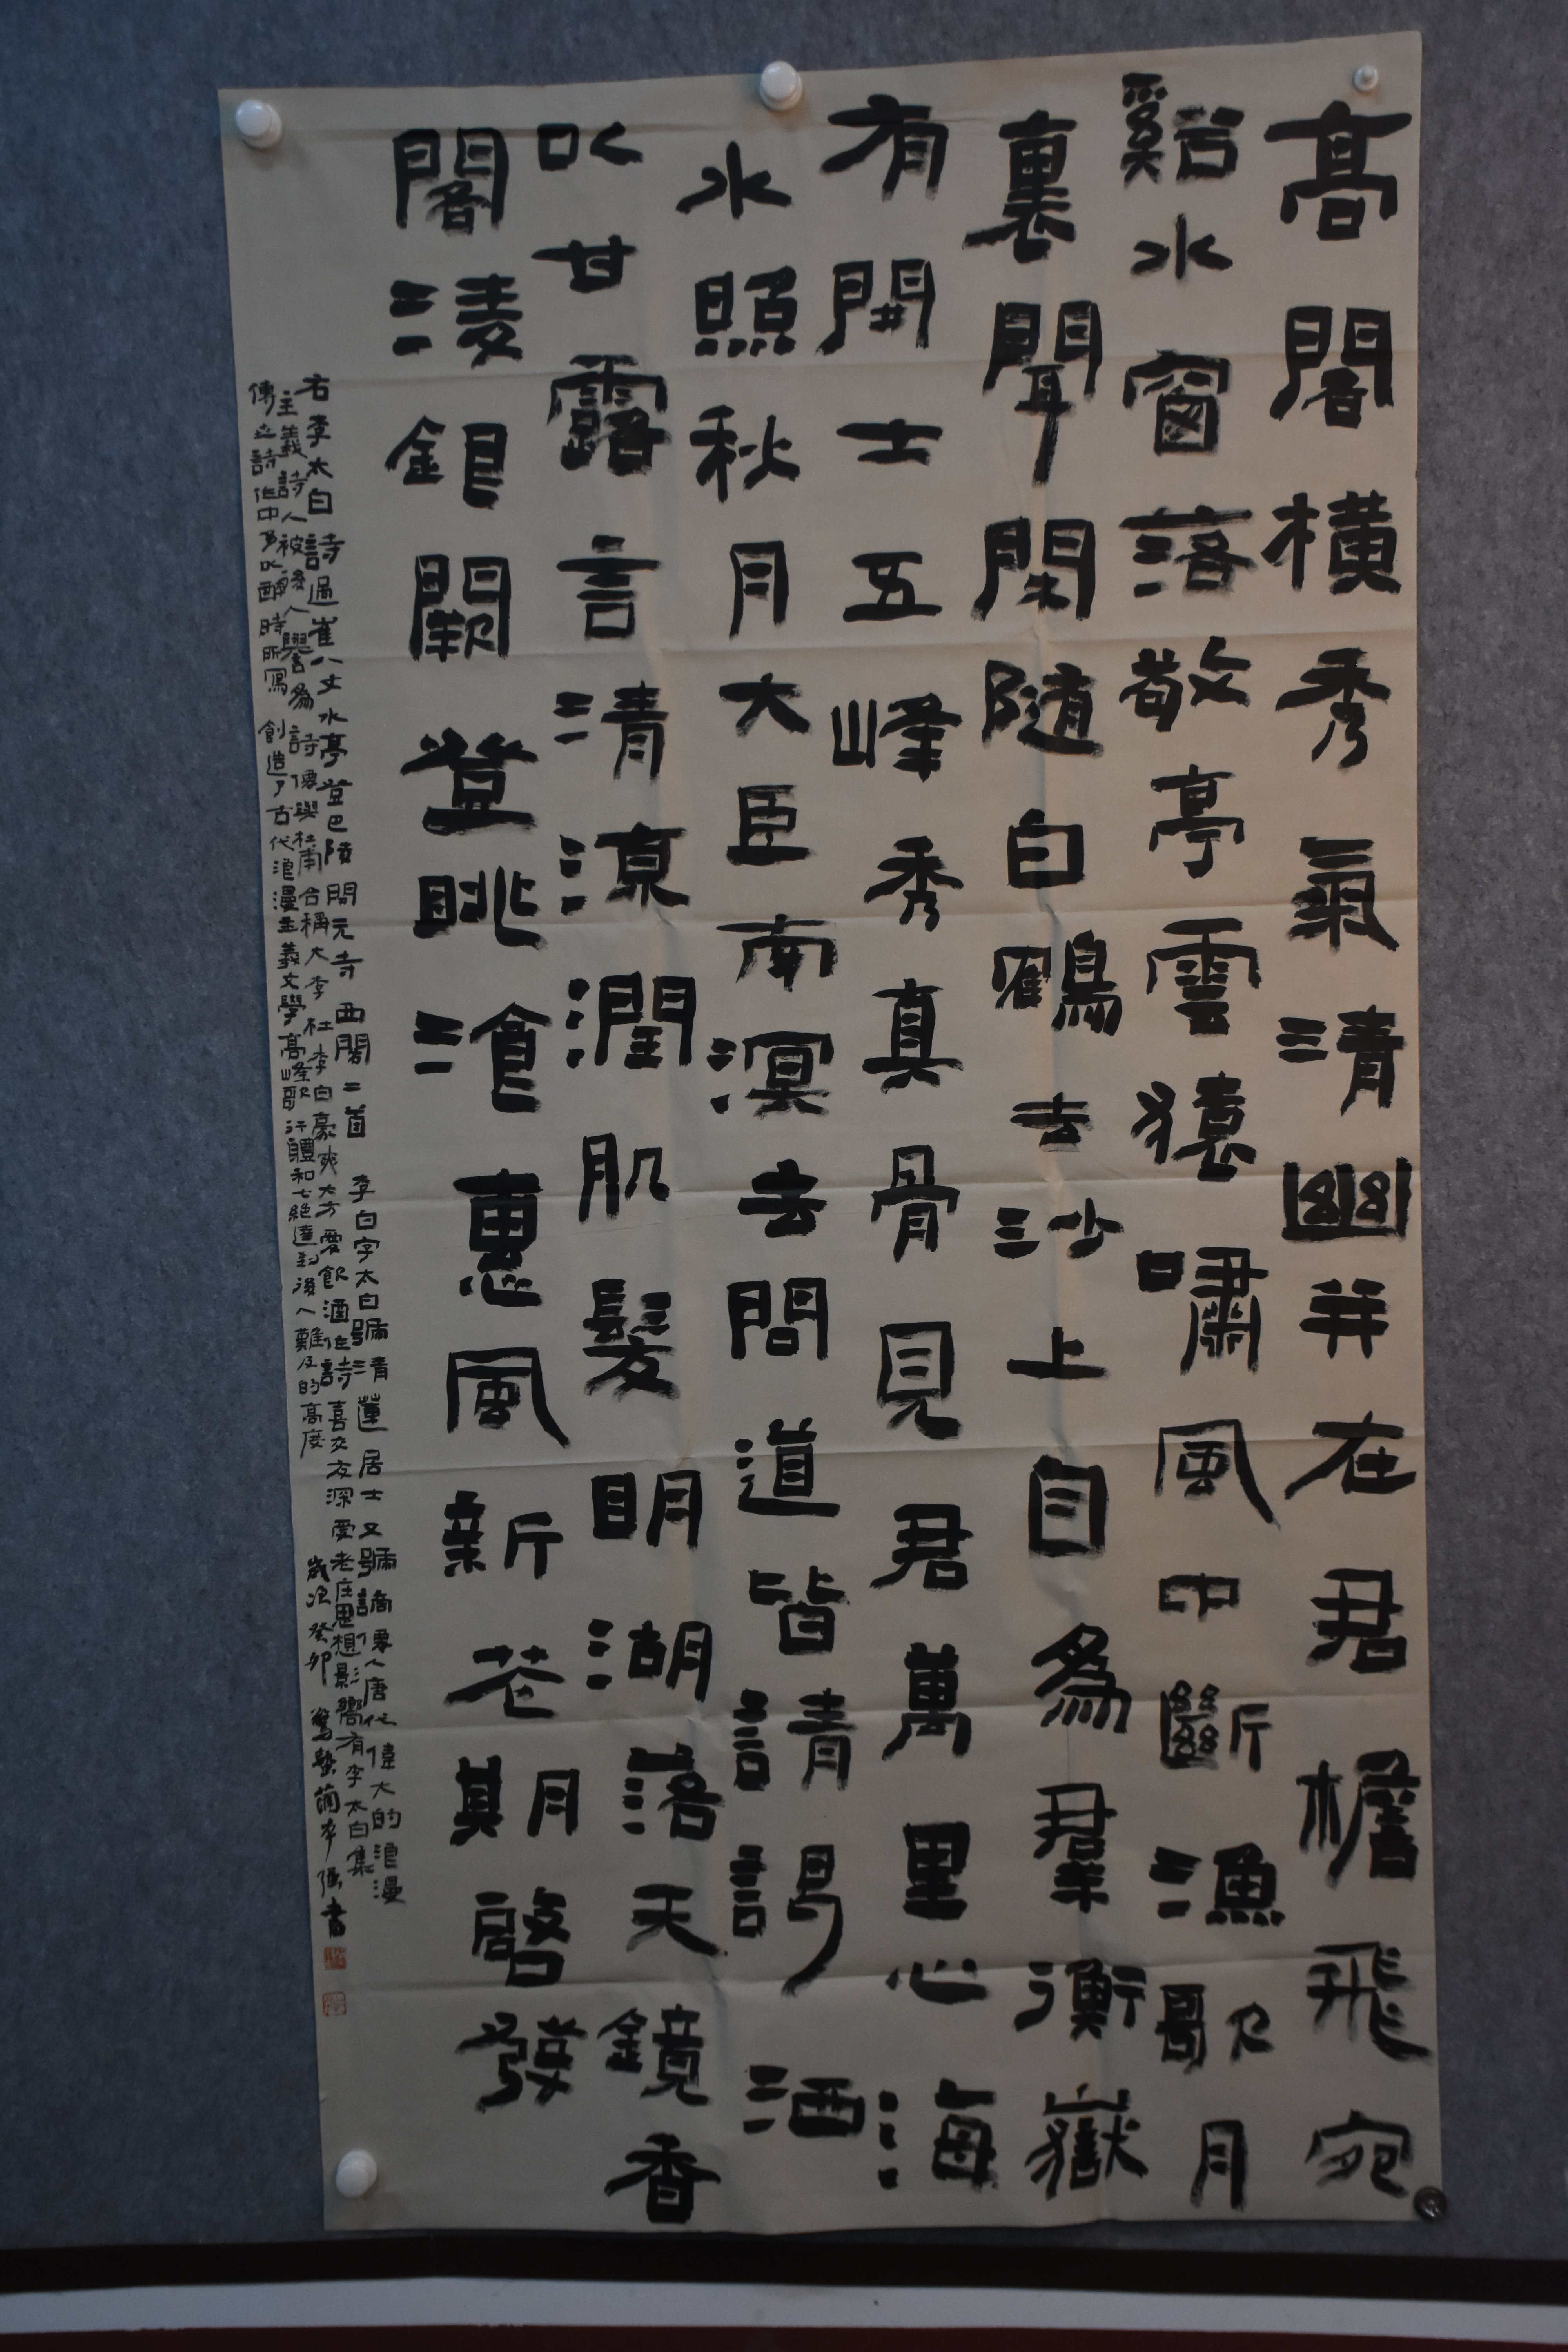 高閣橫秀氣清幽并在君檐飛宛
谿水窗落敬亭雲猿嘯風中斷漁歌月
裏聞閑隨白鶴去沙上自為羣衡嶽
有開士五峰秀真骨見君萬里心海
水照秋月大臣南溟去問道皆請謁洒
以甘露言清涼潤肌髮明湖落天鏡香
閣凌銀闕登眺湌惠風新花期啓發
右李太白詩過崔八丈水亭登巴陵開元寺西閣二首 李白字太白號清蓮居士又號謫僊人唐代偉大的浪漫
主義詩人被後人譽為詩僊與杜甫合稱大李杜李白豪爽大方愛飲酒作詩喜交友深受老庄思想影響有李太白集
傳之詩作中多以醉時所寫創造了古代浪漫主義文學高峰歌行體和七絕達到後人難及的高度
歲次癸卯驚蟄書